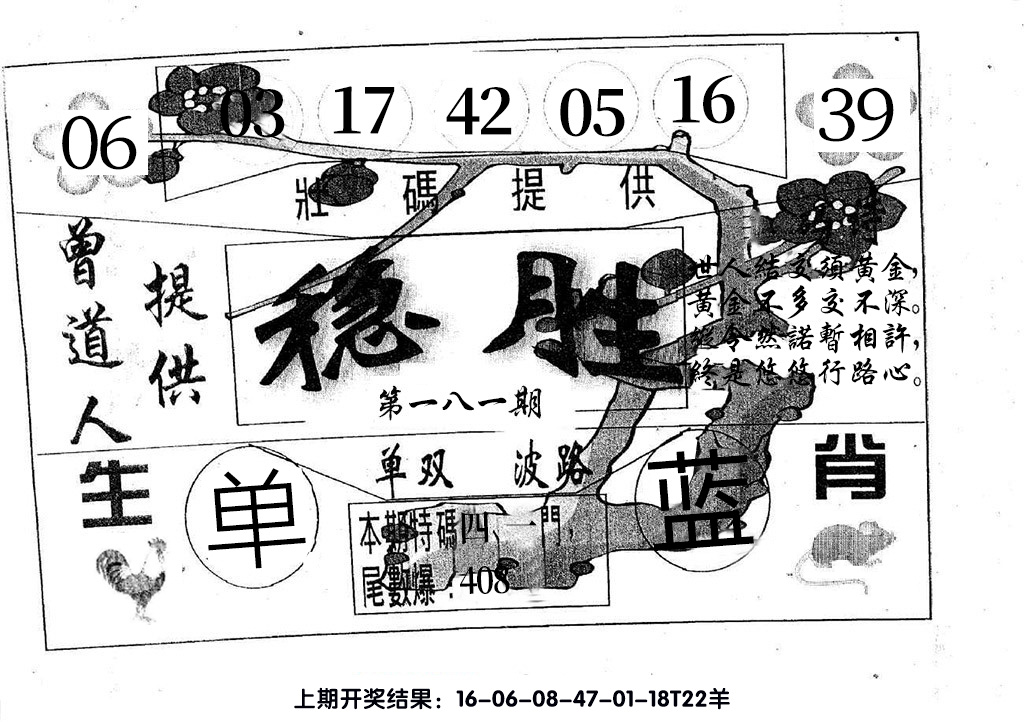 06 03 17 42 05 16 39
壯碼提供
曾道人
提供
稳胜
第一八一期
特
世人結交須黃金，
黃金不多交不深。
縱令然諾暫相許，
終是悠悠行路心。
单双 波路
生肖
单
蓝
本期特碼四、一門，
尾數爆：408
上期开奖结果：16-06-08-47-01-18T22羊